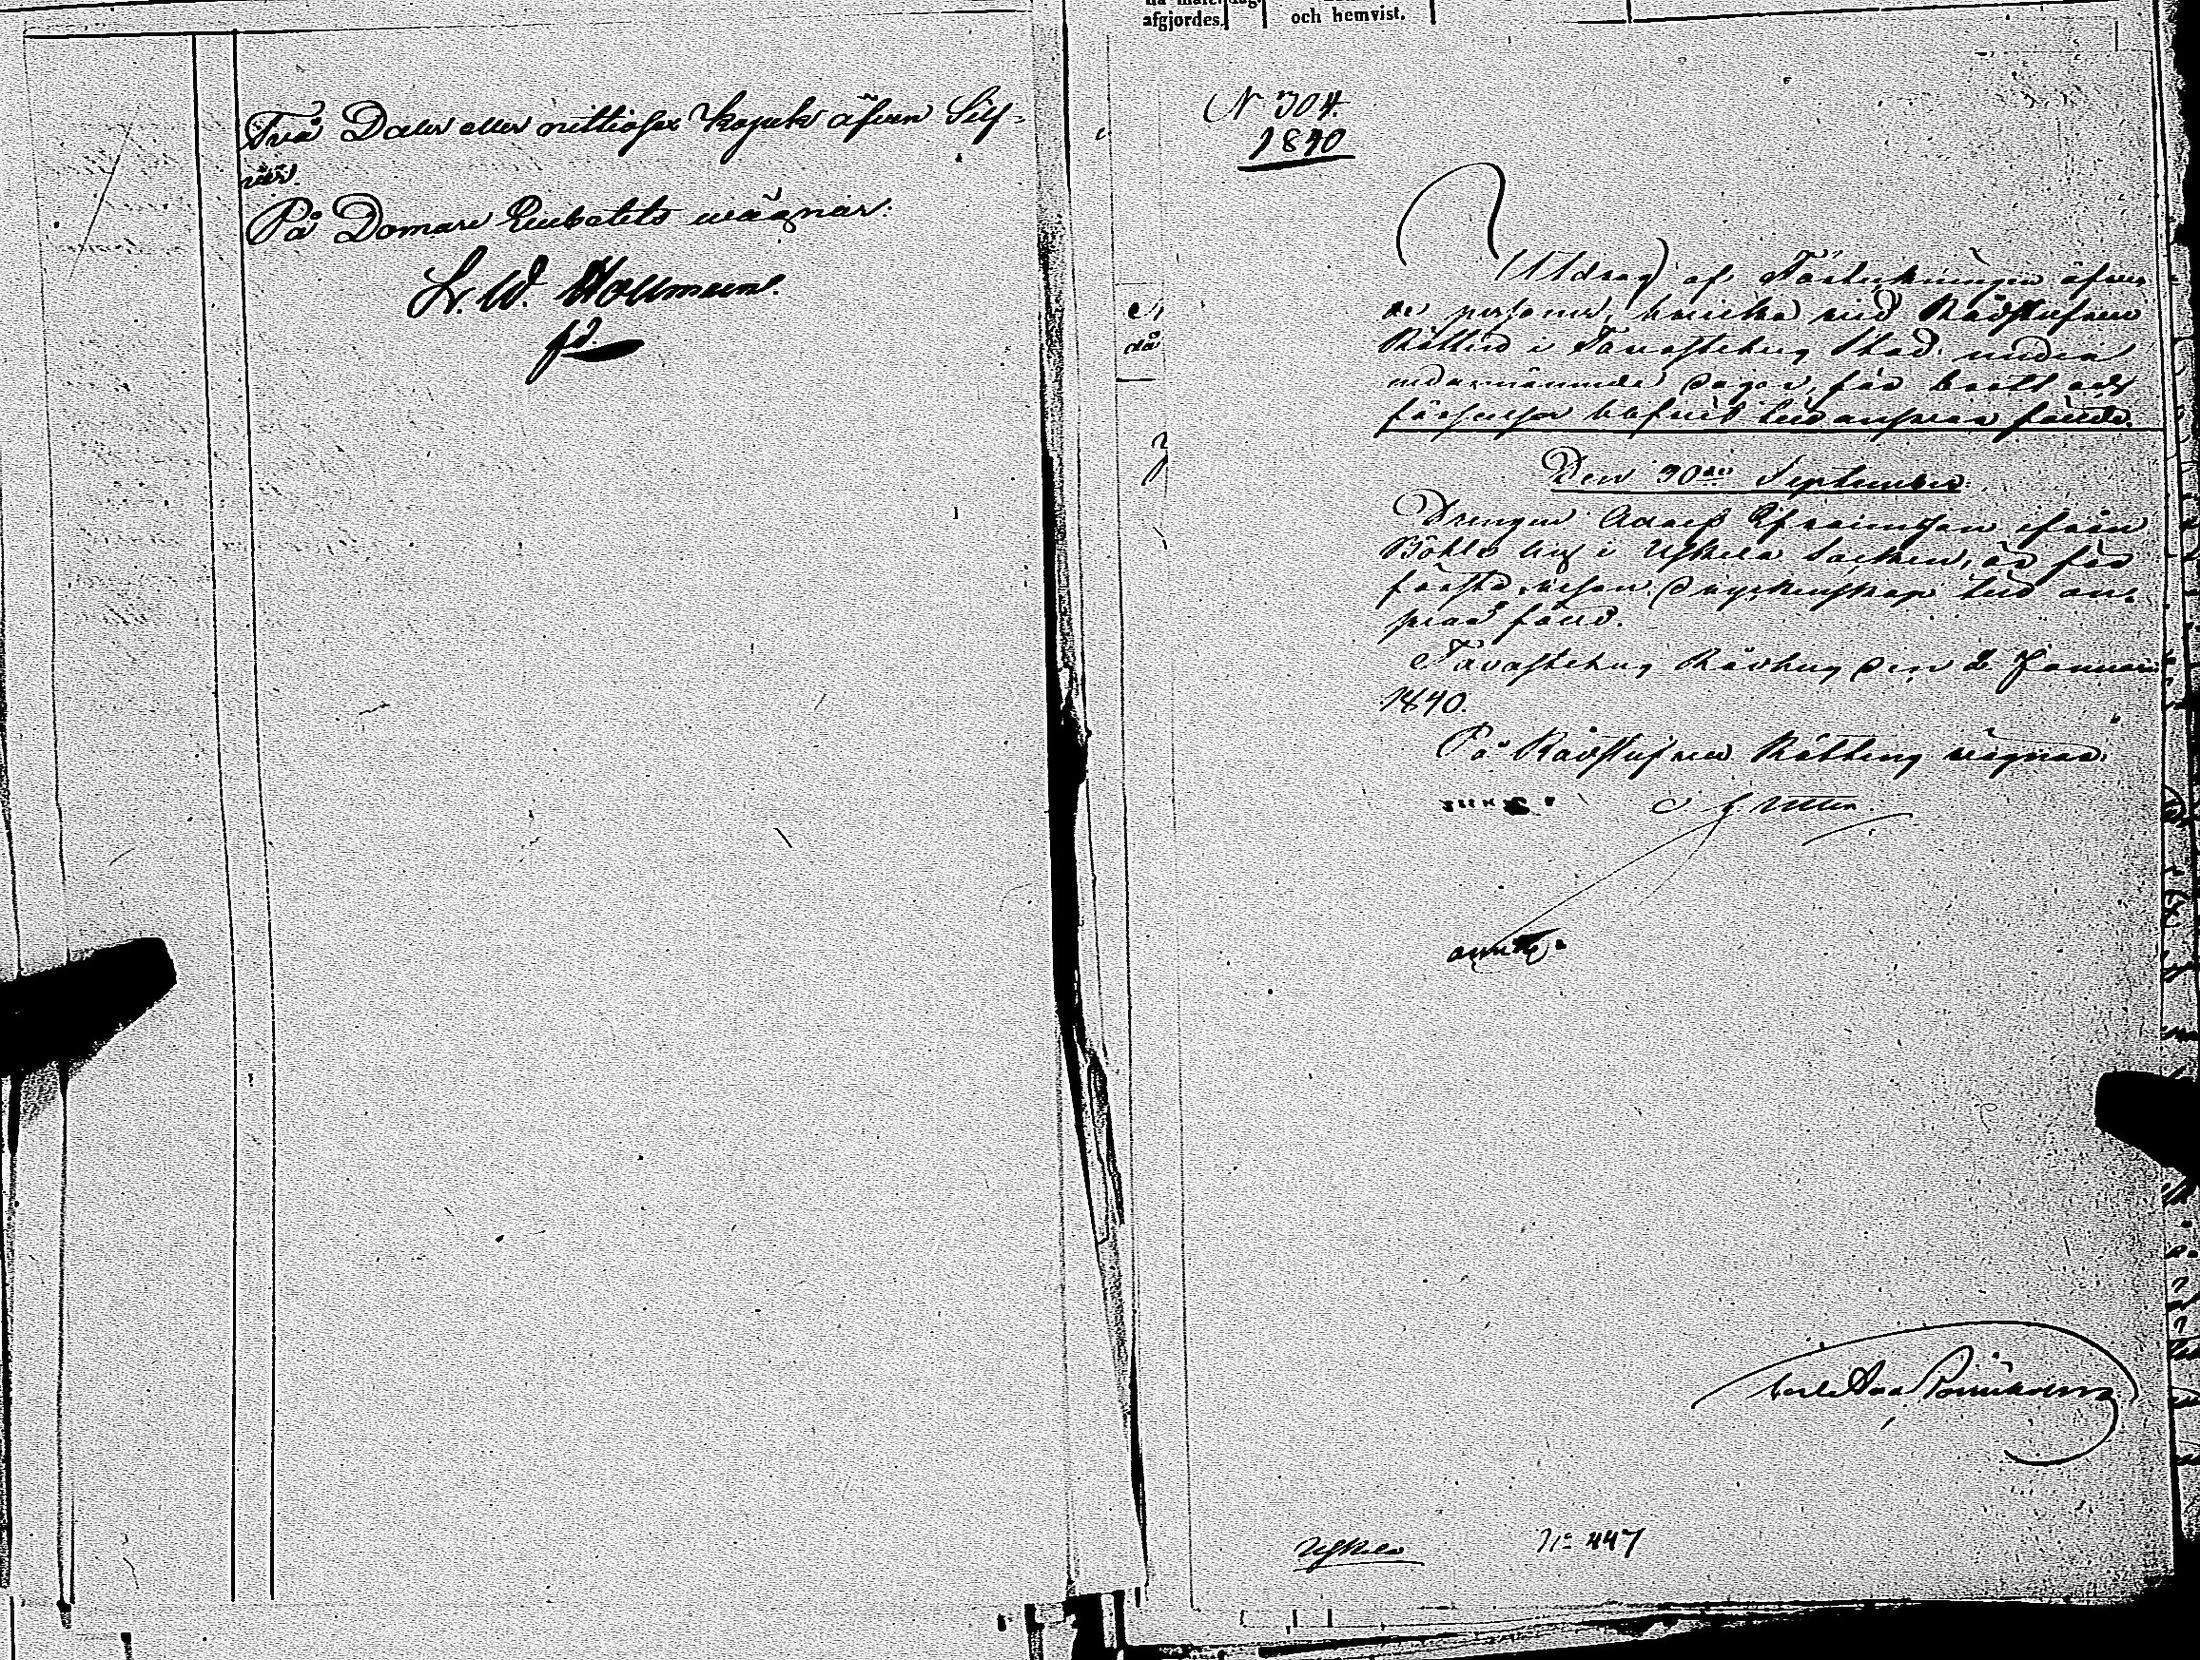 Två Daler eller nittiosex kopek äfven Silf-
ver.
På Domare Embetets wägnar:
L. W. Hollmeen
fd.
afgjordes.
och hemvist.
N 304.
1840
Utdrag af Förteckningen öfver
de personer, hvilka vid Rådstufvu
Rätten i Tavastehus Stad under
nedannämnde dagar, för brott och
förseelser blifvit till ansvar fällde.
Den 30de September.
Drengen Adolf Efraimsson ifrån
Böhle by i Uskela Socken, är för
första resan fylleri till an-
svar fälld.
Tavastehus Rådhus den 2 Januari
1840.
På Rådstufvu Rättens vägnar:
Uskela
No 447